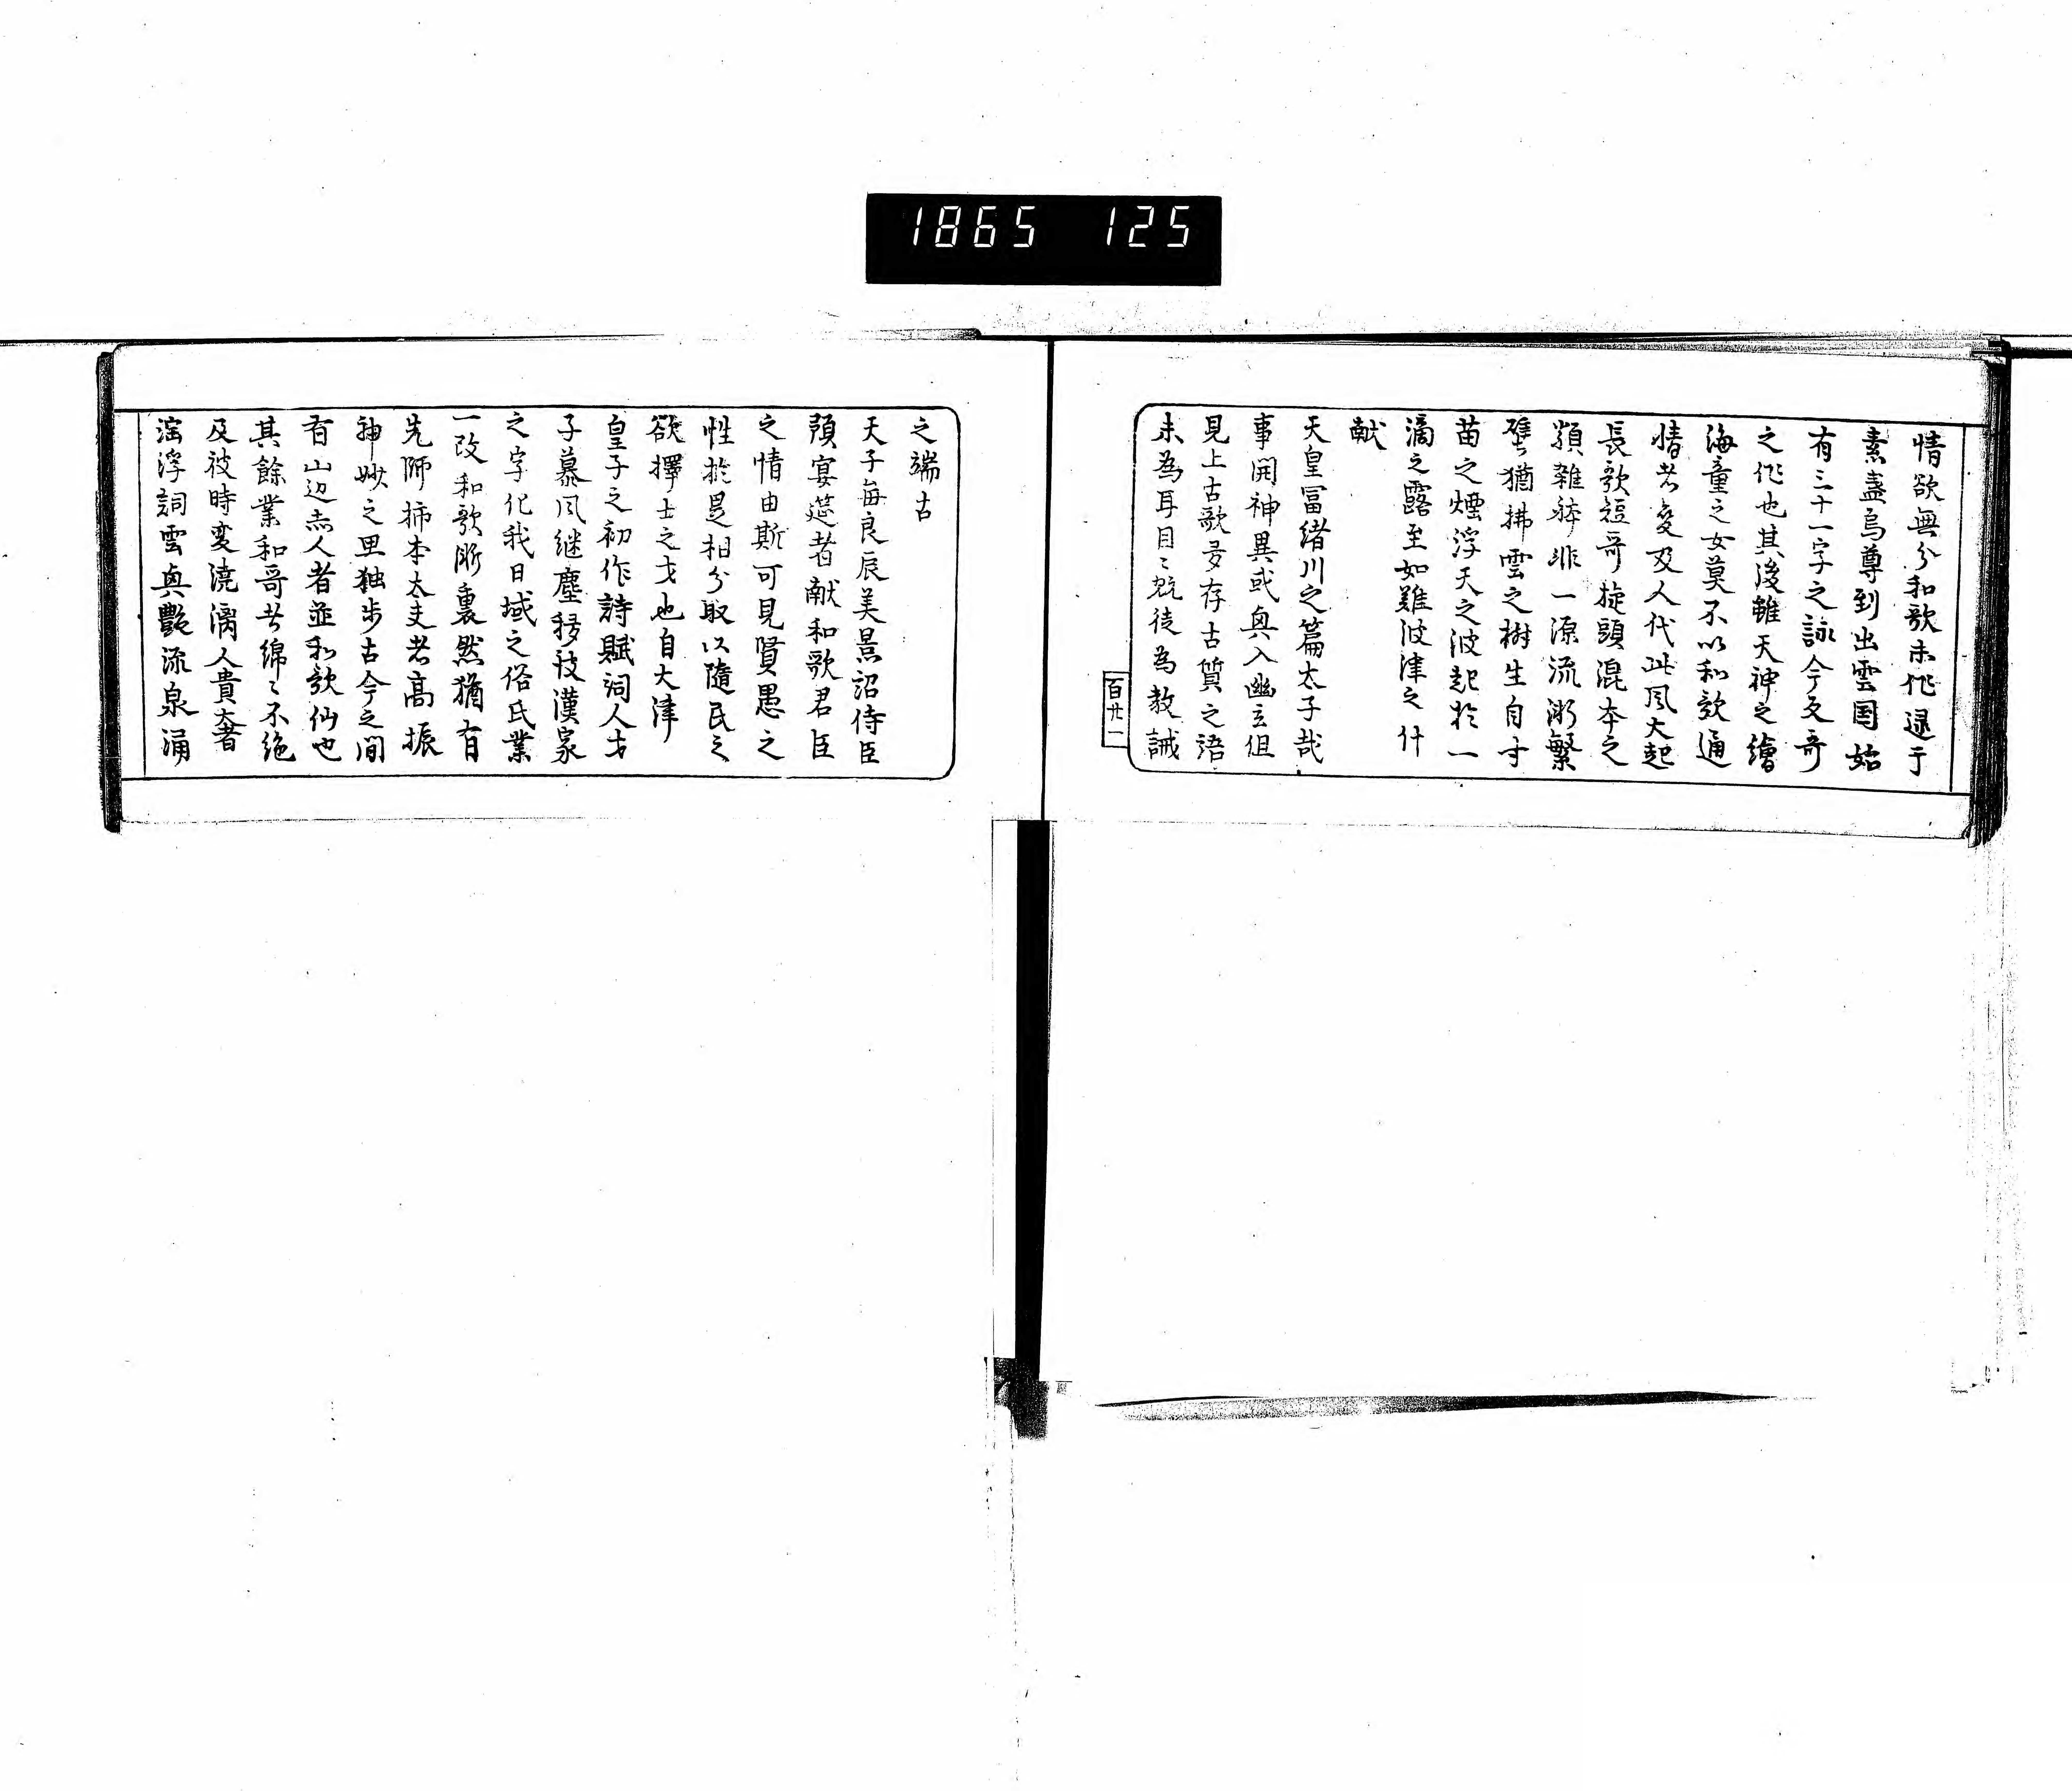 1865 125
情欲無分和歌未作逮于
素盞烏尊到出雲国始
有三十一字之詠今反哥
之作也其後雖天神之繪
海童之女莫不以和歌通
情者爰及人代此風大起
長歌短哥旋頭混本之
類雜躰非一源流漸繁
譬猶拂雲之樹生自寸
苗之煙浮天之波起於一
滴之露至如難波津之什
献
天皇冨緒川之篇太子哉
事開神異或興入幽玄但
見上古歌多存古質之語
未為耳目之翫徒為教誡
百廿一
之端古
天子每良辰美景詔侍臣
預宴莚者献和歌君臣
之情由斯可見賢愚之
性於是相分所以隨民之
欲擇士之才也自大津
皇子之初作詩賦詞人才
子慕風継塵移彼漢家
之字化我日域之俗氏業
一改和歌漸衰然猶有
先師柿本太夫者高振
神妙之思独步古今之間
有山辺赤人者並和歌仙也
其餘業和哥者綿々不絶
及彼時変澆漓人貴奢
滛浮詞雲興艶流泉涌